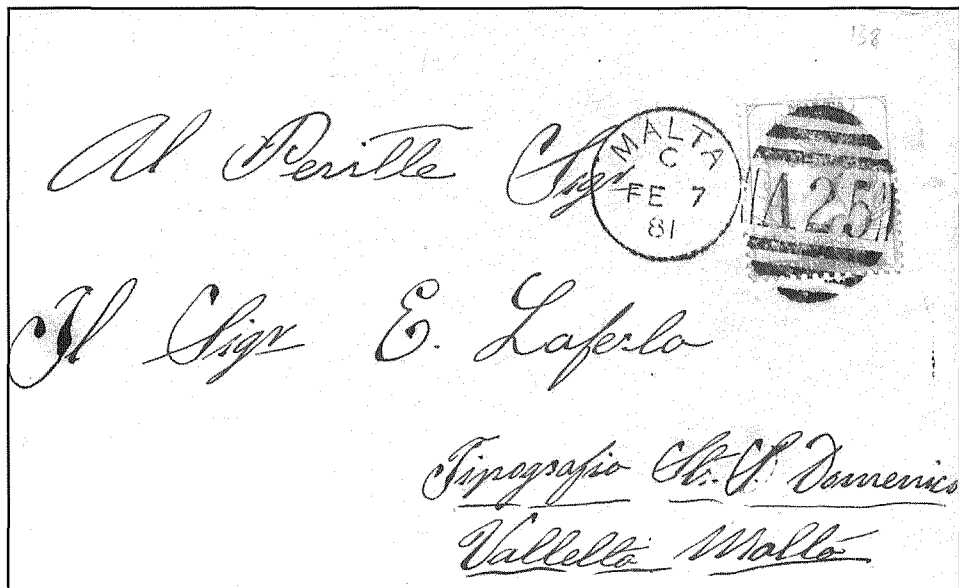 158
Al Perille Sigr
MALTA
C
FE 7
81
A25
Il Sigr E. Laferla
Tipografia St. S. Domenico
Valletta Malta